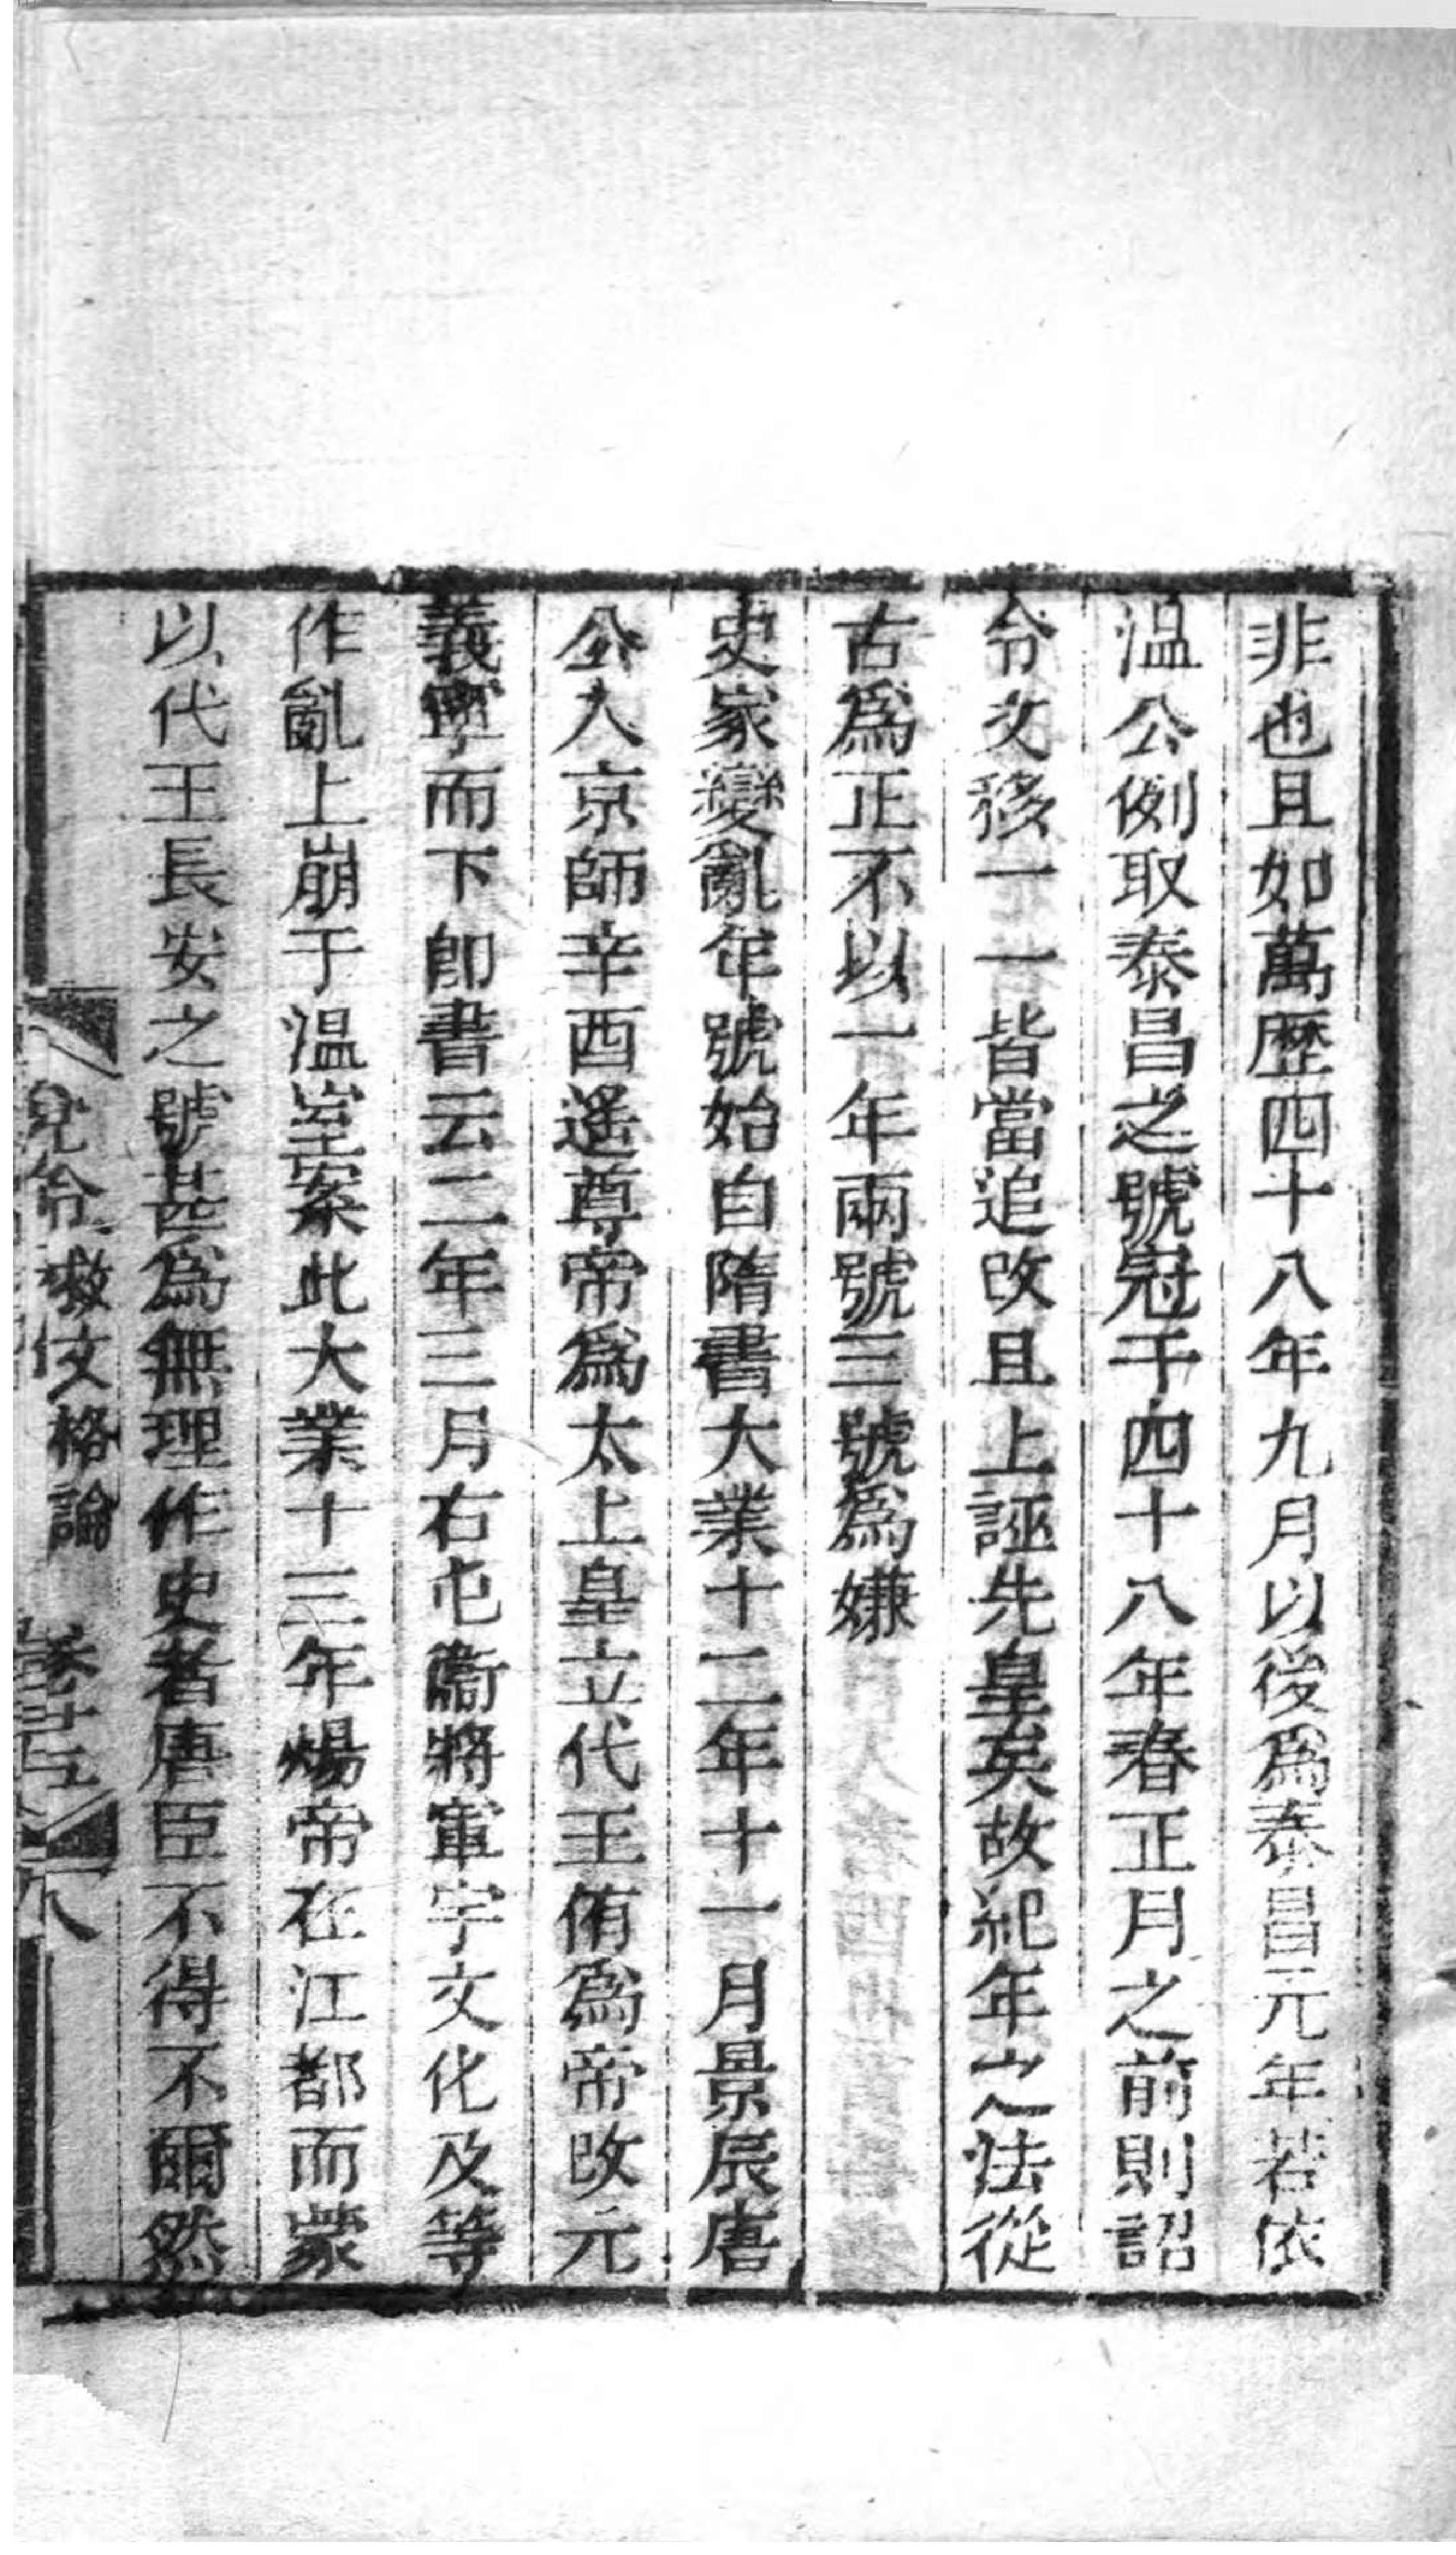 非也且如萬歷四十八年九月以後爲泰昌元年若依
温公例取泰昌之號冠于四十八年春正月之前則詔
令文移一一皆當追改且上誣先皇矣故紀年之法從
古爲正不以一年兩號三號爲嫌
史家變亂年號始自隋書大業十二年十一月景辰唐
公入京師辛酉遥尊帝爲太上皇立代王侑爲帝改元
義寧而下卽書云二年三月右屯衞將軍宇文化及等
作亂上崩于温室案此大業十三年煬帝在江都而蒙
以代王長安之號甚爲無理作史者唐臣不得不爾然
救文格論